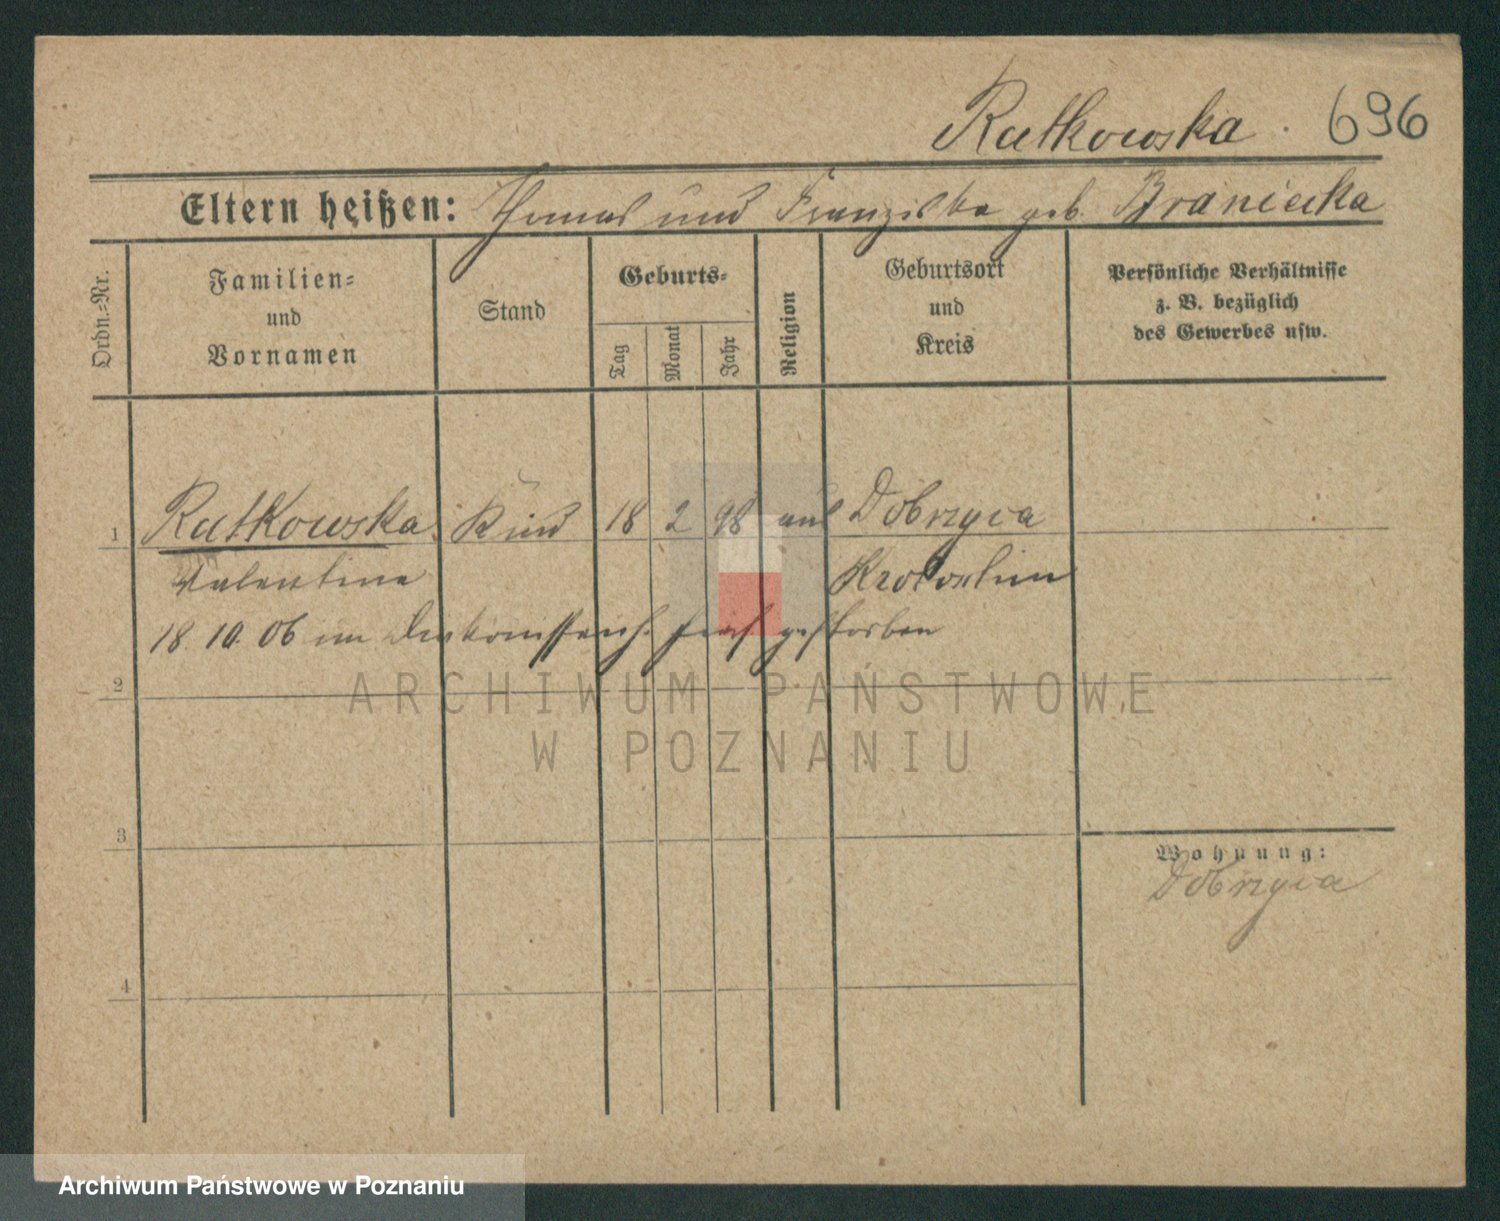 Ratkowska. 696
Eltern heißen: Thomas und Franziska geb. Braniecka
Ordn.-Nr.
Familien-
und
Vornamen
Stand
Geburts-
Tag
Monat
Jahr
Religion
Geburtsort
und
Kreis
Persönliche Verhältnisse
z. B. bezüglich
des Gewerbes usw.
1 Ratkowska Kind 18 2 98 Dobrzyca
Valentine Krotoschin
18. 10. 06 im gestorben
2
ARCHIWUM PAŃSTWOWE
W POZNANIU
3
Wohnung:
Dobrzyca
4
Archiwum Państwowe w Poznaniu